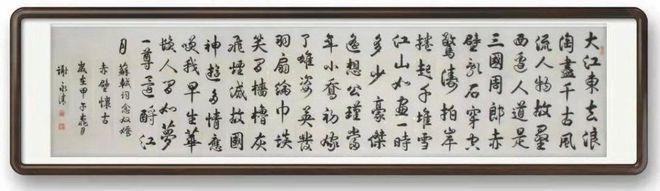 大江東去浪
淘盡千古風
流人物故壘
西邊人道是
三國周郎赤
壁亂石穿空
驚濤拍岸
捲起千堆雪
江山如畫一時
多少豪傑
遙想公瑾當
年小喬初嫁
了雄姿英發
羽扇綸巾談
笑間檣櫓灰
飛煙滅故國
神遊多情應
笑我早生華
髮人間如夢
一尊還酹江
月 蘇軾詞念奴嬌
赤壁懷古
歲在甲午 月
謝永